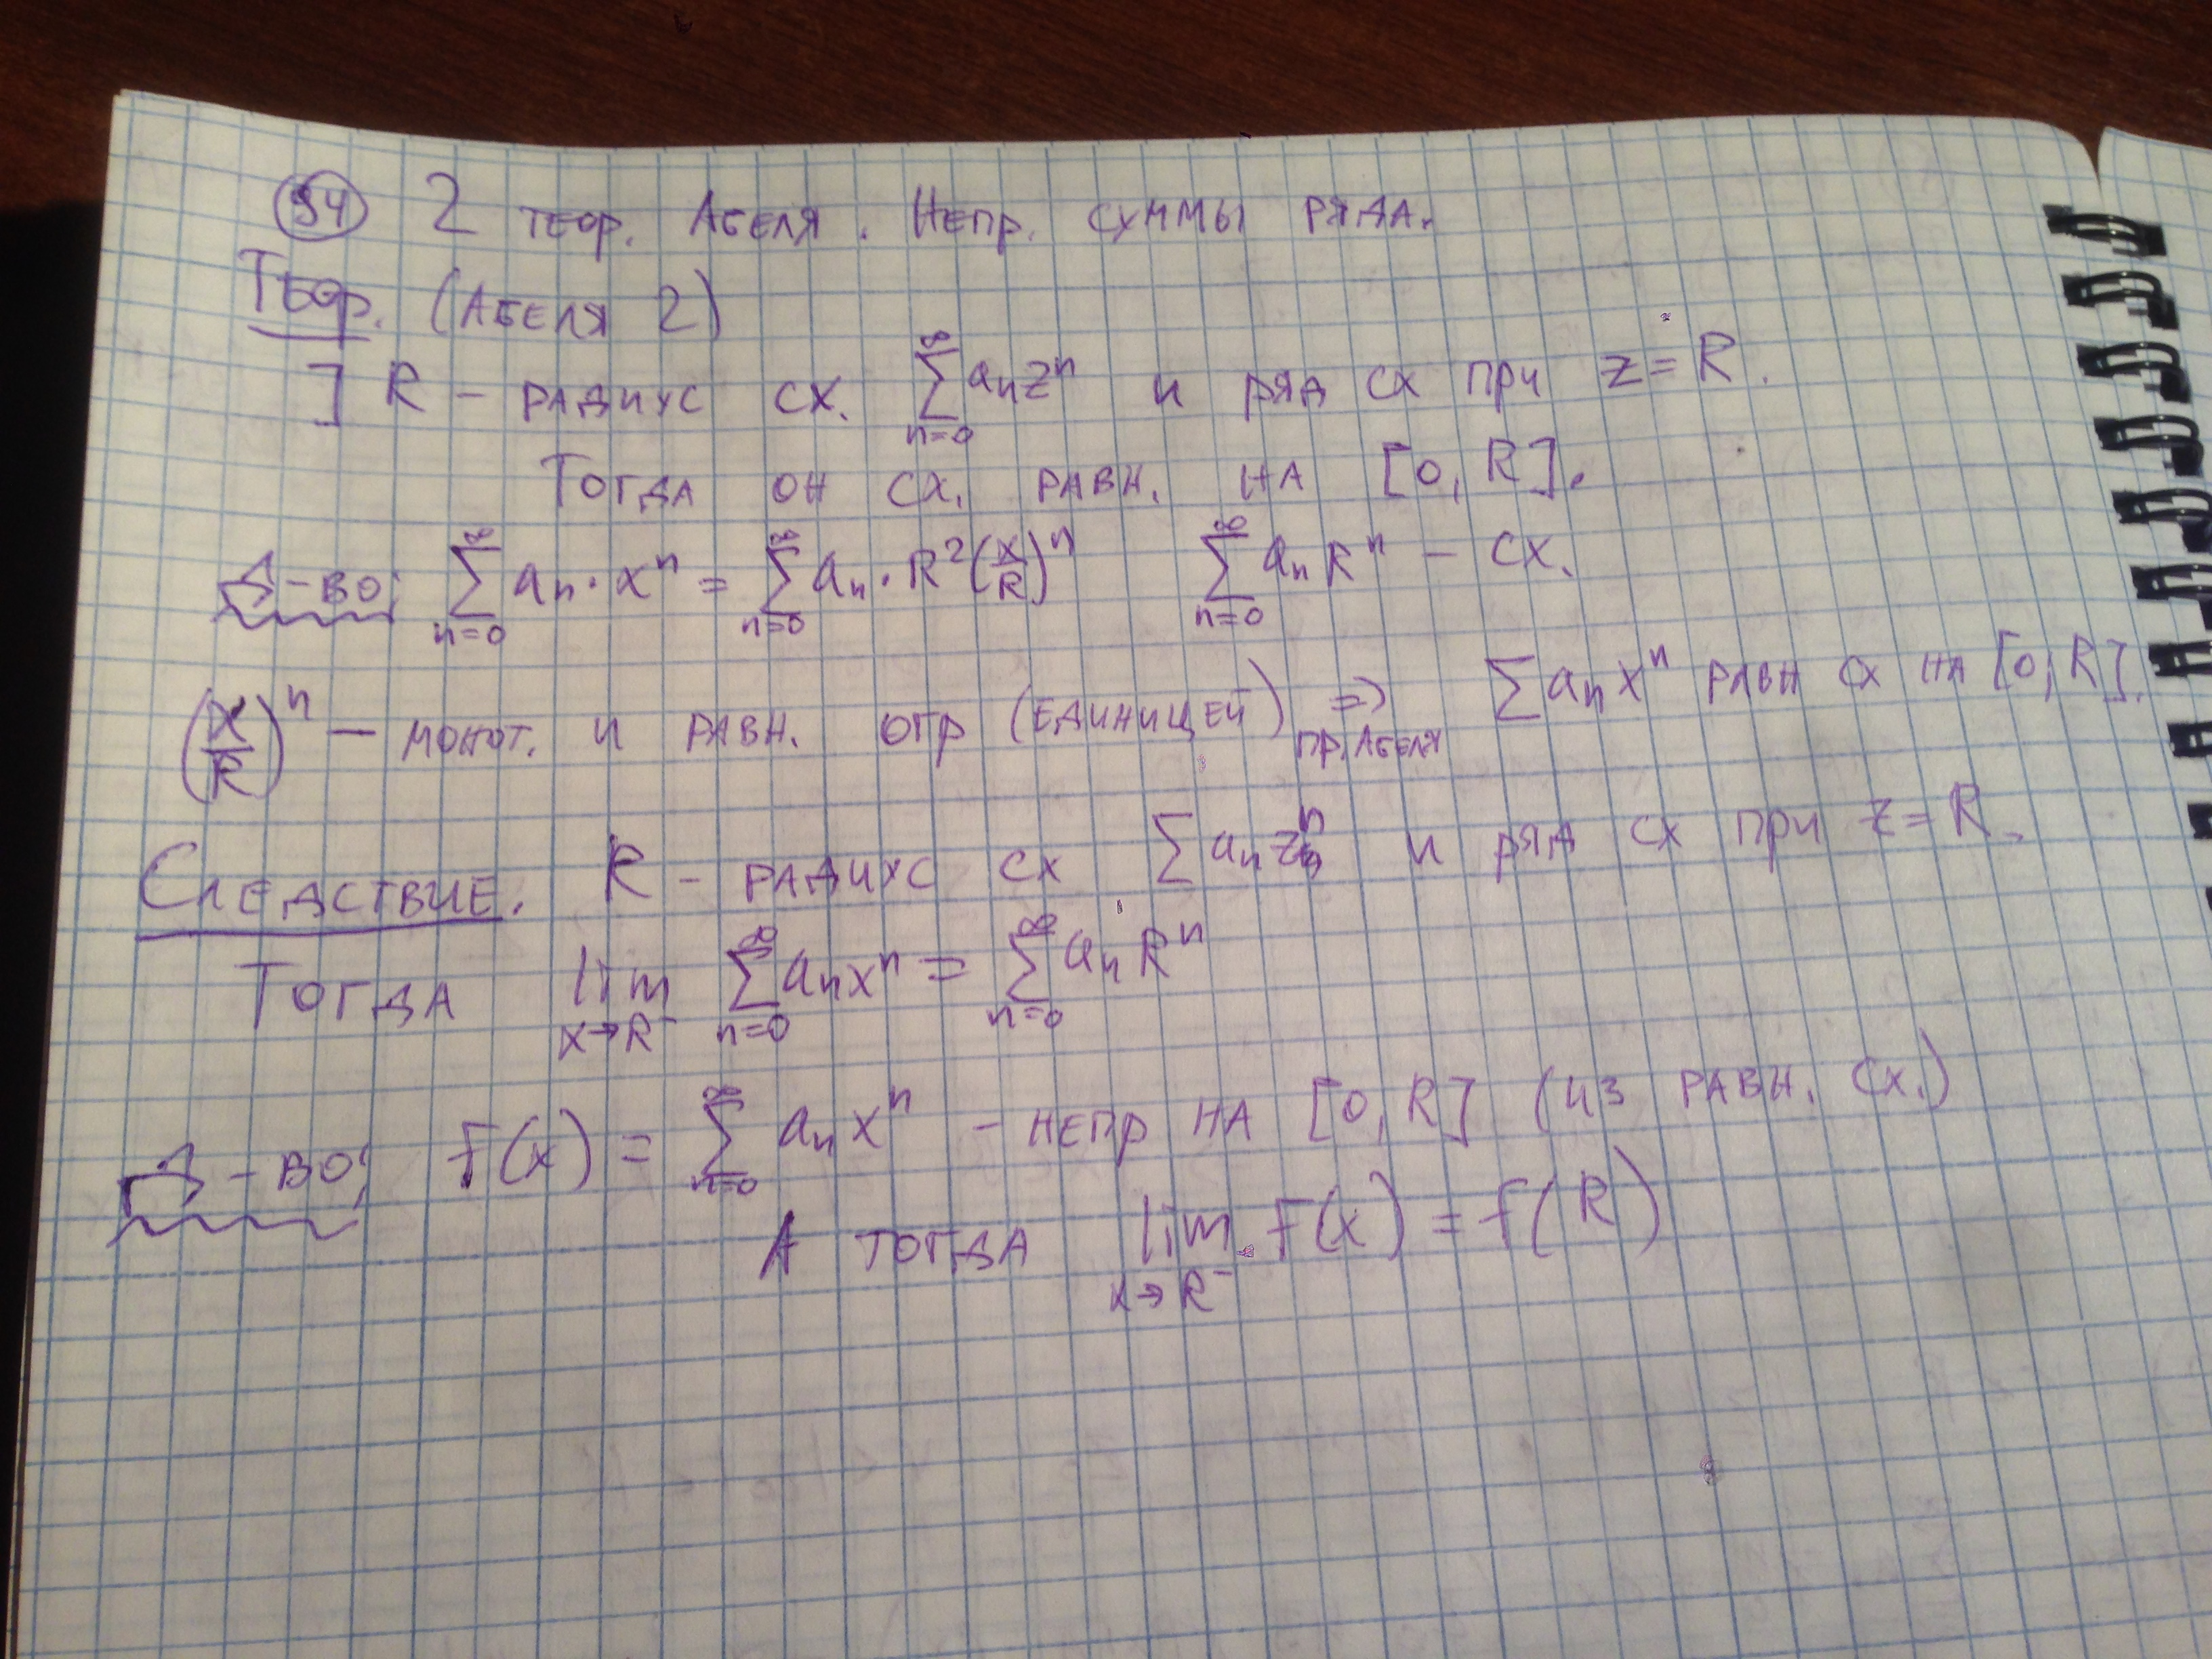 94 2 теор. Абеля. Непр. суммы ряда.
Теор. (Абеля 2)
] R – радиус сх. ∑_{n=0}^{∞} aₙzⁿ и ряд сх при z = R.
Тогда он сх. равн. на [0, R].
Д-во: ∑_{n=0}^{∞} aₙ · xⁿ = ∑_{n=0}^{∞} aₙ · R²(x/R)ⁿ ∑_{n=0}^{∞} aₙRⁿ – сх.
(x/R)ⁿ – монот. и равн. огр (единицей) ⇒ пр. Абеля ∑aₙxⁿ равн сх на [0, R].
Следствие. R – радиус сх ∑aₙzⁿ и ряд сх при z = R.
Тогда lim_{x→R⁻} ∑_{n=0}^{∞} aₙxⁿ = ∑_{n=0}^{∞} aₙRⁿ
Д-во: f(x) = ∑_{n=0}^{∞} aₙxⁿ – непр на [0, R] (из равн. сх.)
А тогда lim_{x→R⁻} f(x) = f(R)